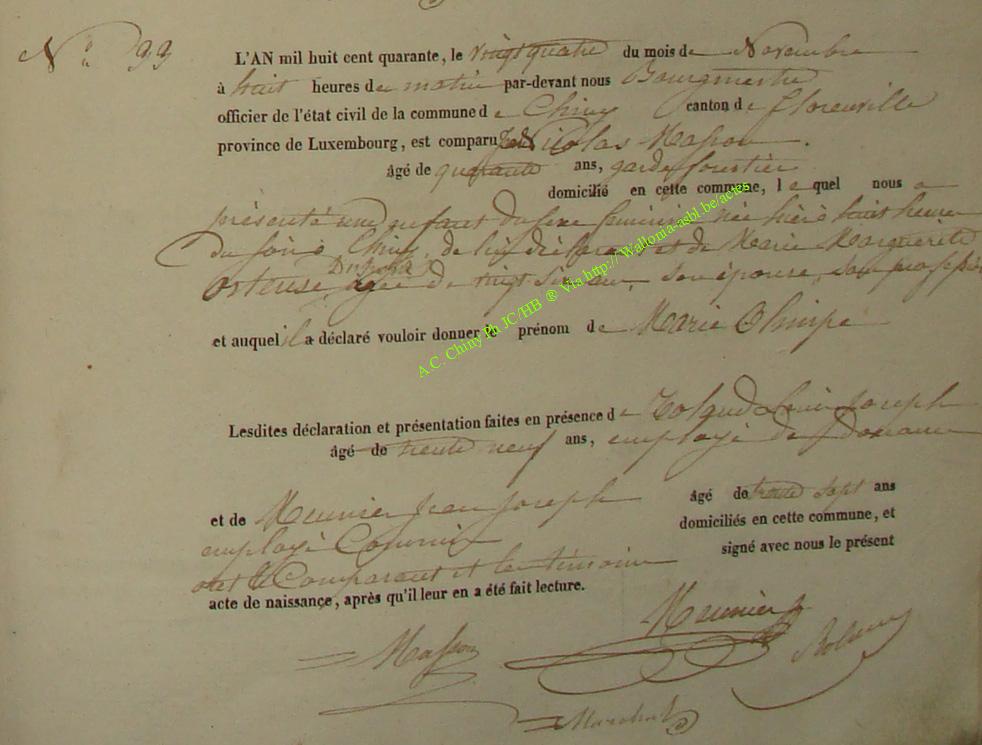 N° 99
L'AN mil huit cent quarante, le vingt quatre du mois de Novembre
à huit heures de matin par-devant nous Bourgmestre
officier de l'état civil de la commune de Chiny canton de Florenville
province de Luxembourg, est comparu Nicolas Masson
âgé de quarante ans, garde forestier
domicilié en cette commune, lequel nous a
présenté un enfant du sexe féminin née hier à huit heures
du soir à Chiny, de lui déclarant et de Marie Marguerite
Orteuse, agée de vingt six ans, son épouse, sans profession
et auquel il a déclaré vouloir donner le prénom de Marie Olimpe
Lesdites déclaration et présentation faites en présence de Joseph
âgé de trente neuf ans, employé des douanes
et de Meunier Jean Joseph âgé de trente sept ans
employé domiciliés en cette commune, et
ont le Comparant et les témoins signé avec nous le présent
acte de naissance, après qu'il leur en a été fait lecture.
Meunier
Masson
Marchal
A.C. Chiny Ph JC/HB ® Via http://Wallonia-asbl.be/actes